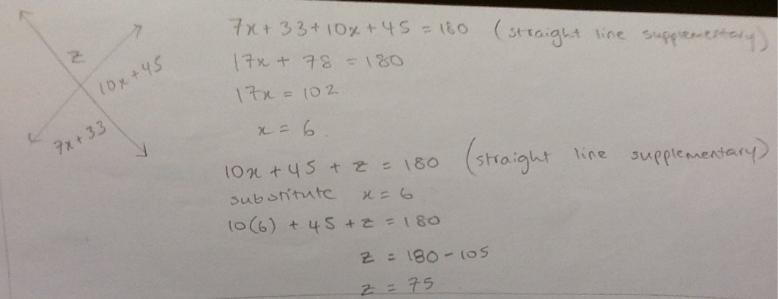 z
10x+45
7x+33
7x+33+10x+45 = 180 (straight line supplementary)
17x + 78 = 180
17x = 102
x = 6.
10x + 45 + z = 180 (straight line supplementary)
substitute x = 6
10(6) + 45 + z = 180
z = 180 - 105
z = 75